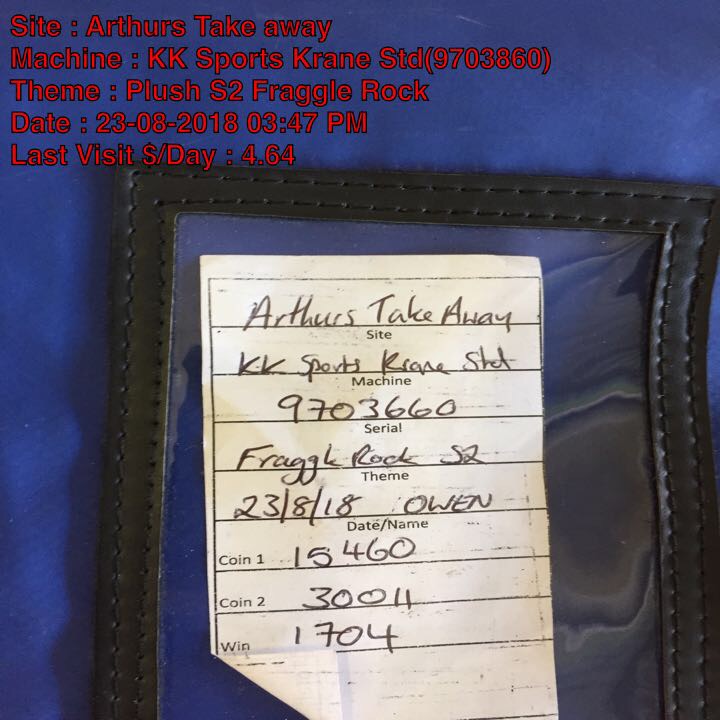 Site : Arthurs Take away
Machine : KK Sports Krane Std(9703860)
Theme : Plush S2 Fraggle Rock
Date : 23-08-2018 03:47 PM
Last Visit $/Day : 4.64
Arthurs Take Away
Site
KK Sports Krane Std
Machine
9703660
Serial
Fraggle Rock S2
Theme
23/8/18 OWEN
Date/Name
Coin 1 15460
Coin 2 30011
Win 1704